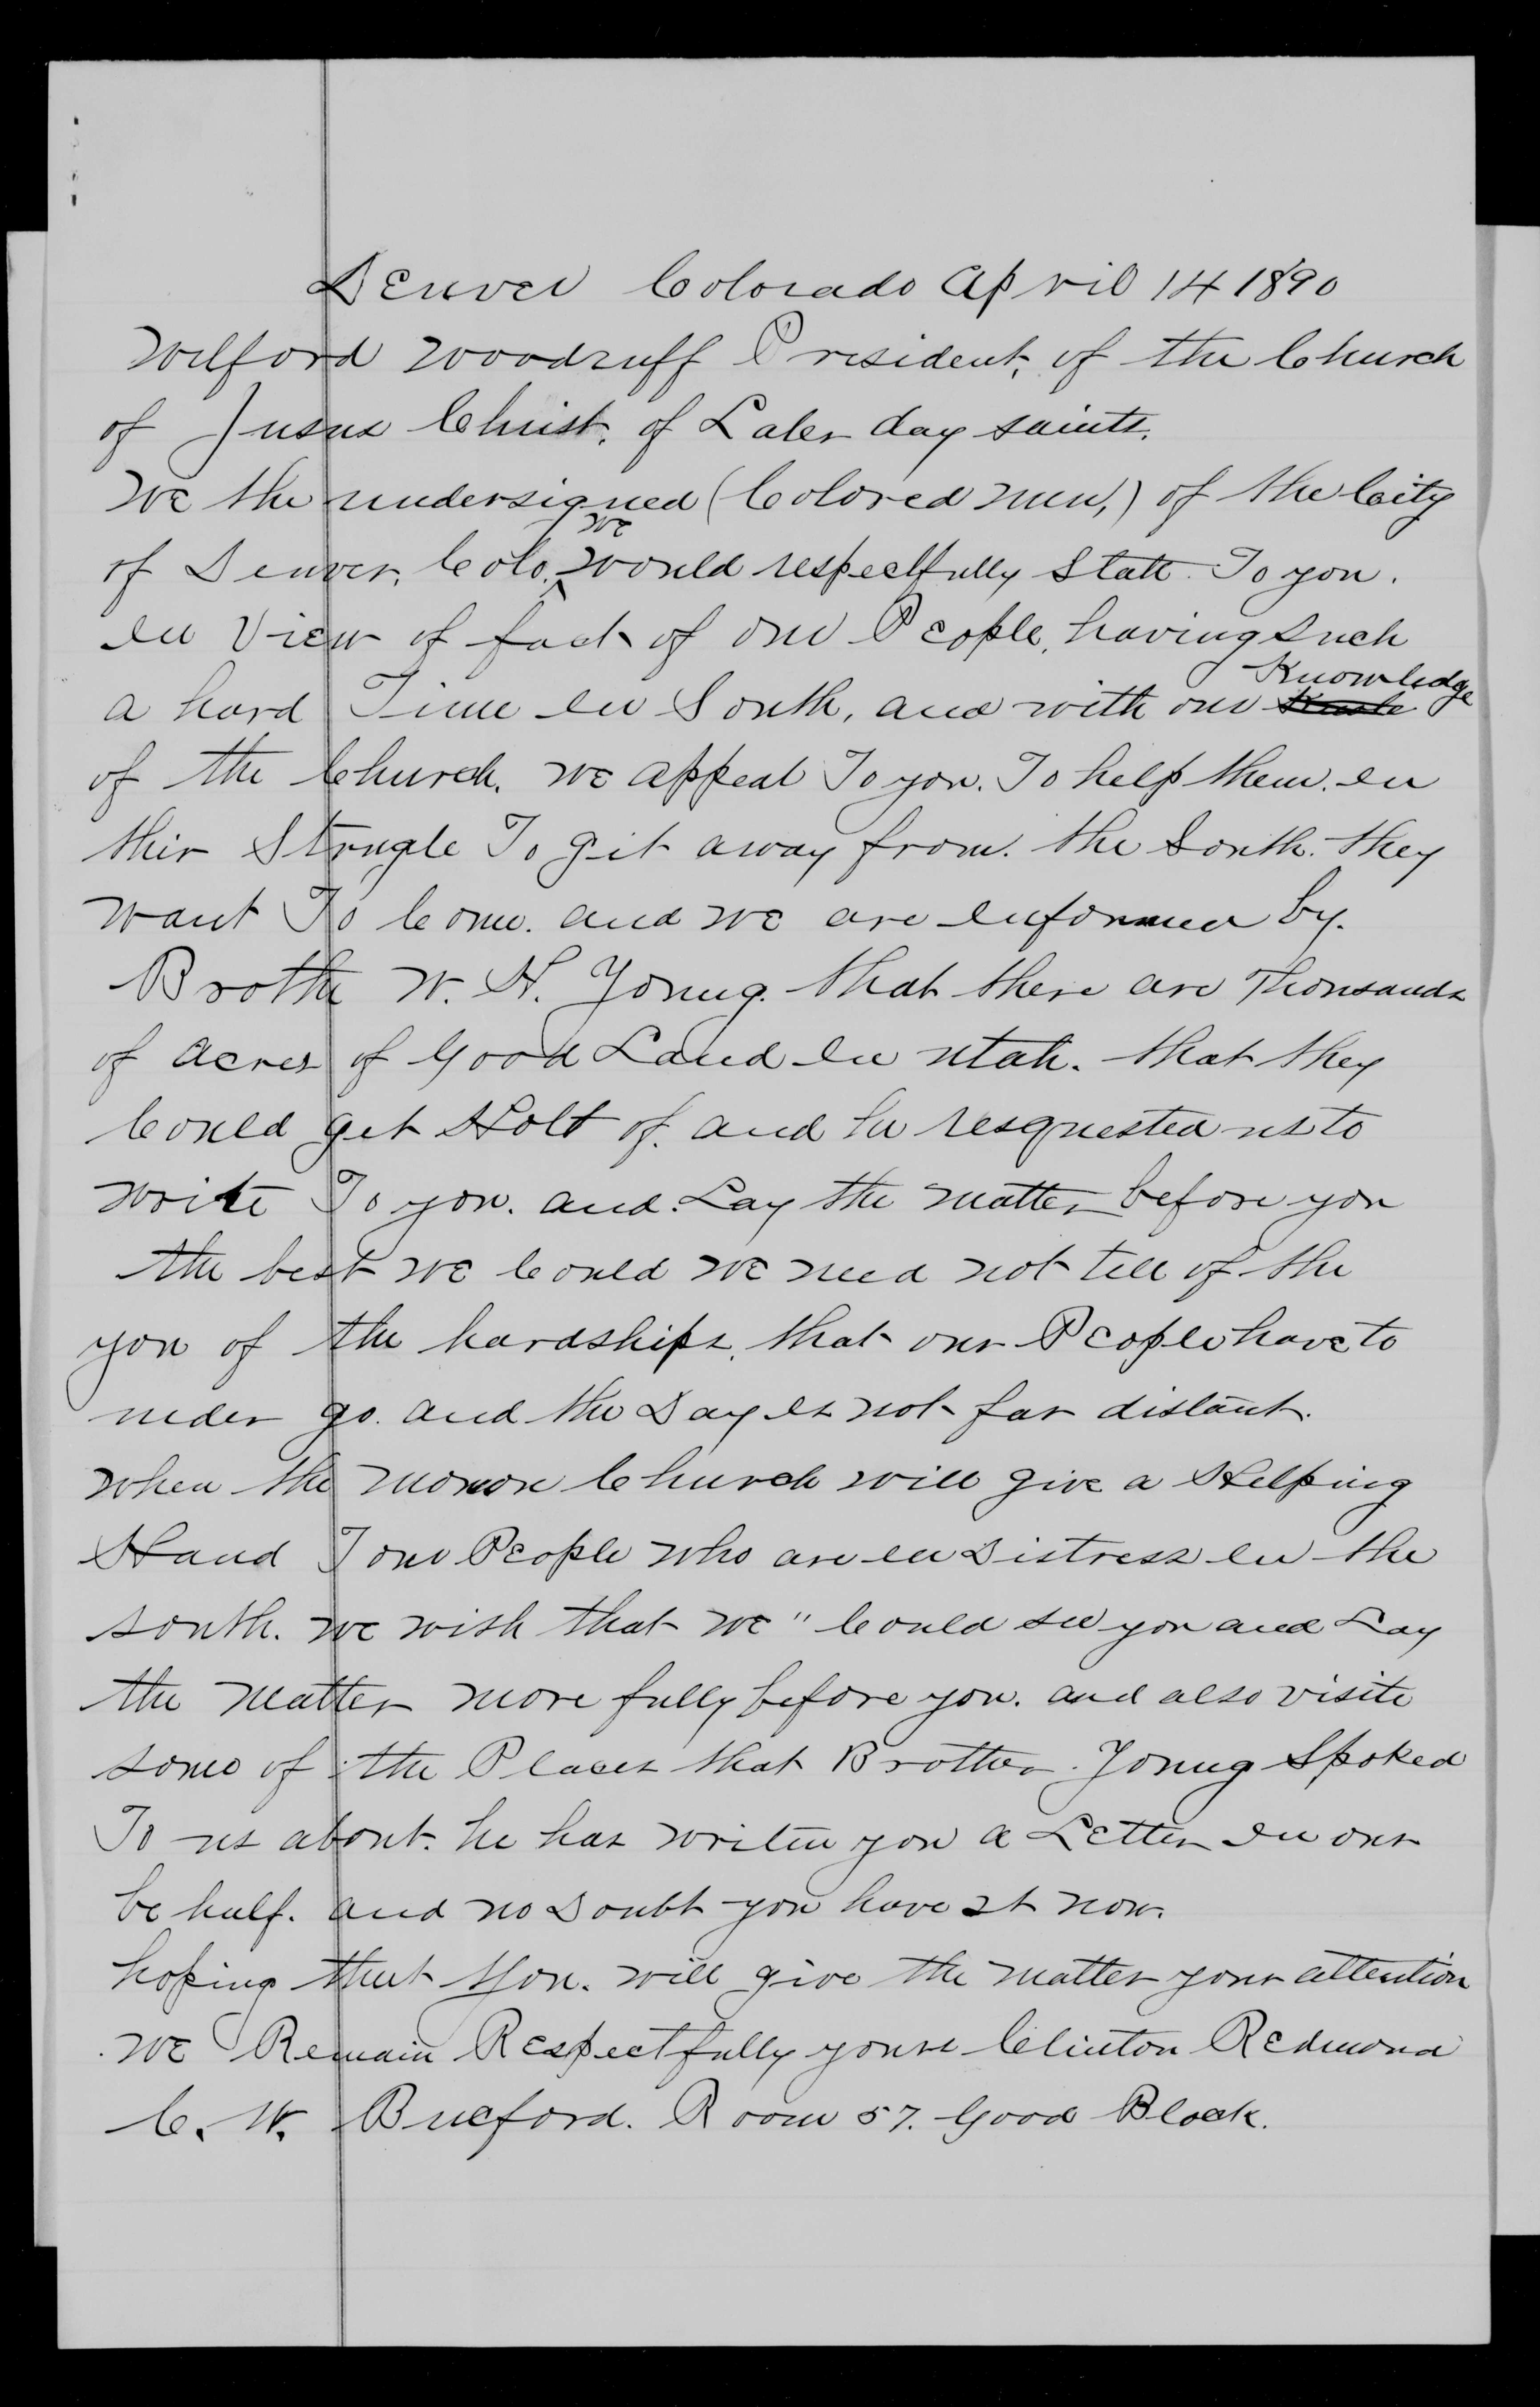 Denver Colorado April 14 1890
Wilford Woodruff President, of the Church
of Jusus Christ, of Later day saints.
We the undersigned (Colored men,) of the City
of Denver, Colo, we would respectfully State To you.
in View of fact of our People, having such
a hard Time in South, and with our Knowledge
of the Church. We appeal To you. To help them. in
thir Strugle To git away from. the South. they
want To Come. and we are informed by.
Brothe W. H. Young. that there are Thousands
of acres of Good Land in utah. that they
Could get Holt of. and he resquested us to
write To you. and. Lay the matter before you
the best we Could we need not tell of the
you of the hardships, that our People have to
under go. and the Day is not far distant.
when the momon Church will give a Helping
Hand T our People who are in Distress in the
south. we wish that we " Could see you and Lay
the matter more fully before you. and also visite
some of the Places that Brother. Young Spoked
To us about. he has writen you a Letter in our
be half. and no Doubt you have it now.
hoping that You. will give the matter your attention
we Remain Respectfully yours Clinton Redmond
C. W. Bueford. Room 57. Good Block.